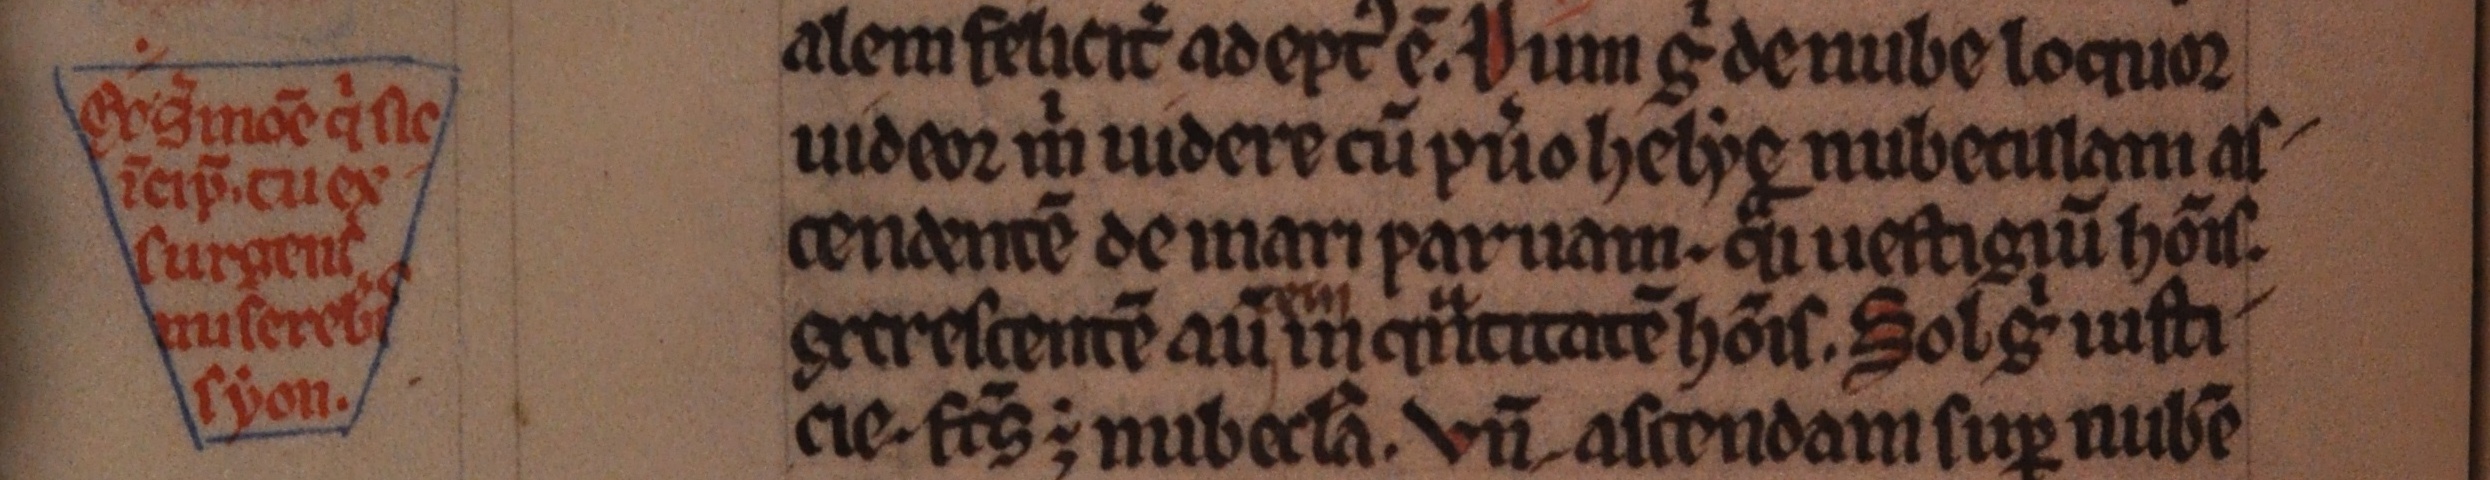 Ex s̾moē q̇ sic
īcip̄. tu ex
surgens
misereb̾
syon.
alem felicit̾ adept᾿ ē. Dum g̊ de nube loquor
uideor m̊ uidere cū pu̾o helẏę nubeculam as-
cendentē de mari paruam. q̈i uestigiū hōis.
gͣcrescentē aūtem in qͣntitatē hōis. Sol g̊ iusti-
cie. fc̄s ÷ nubecl̄a. Vn̄ ascendam suꝑ nubē